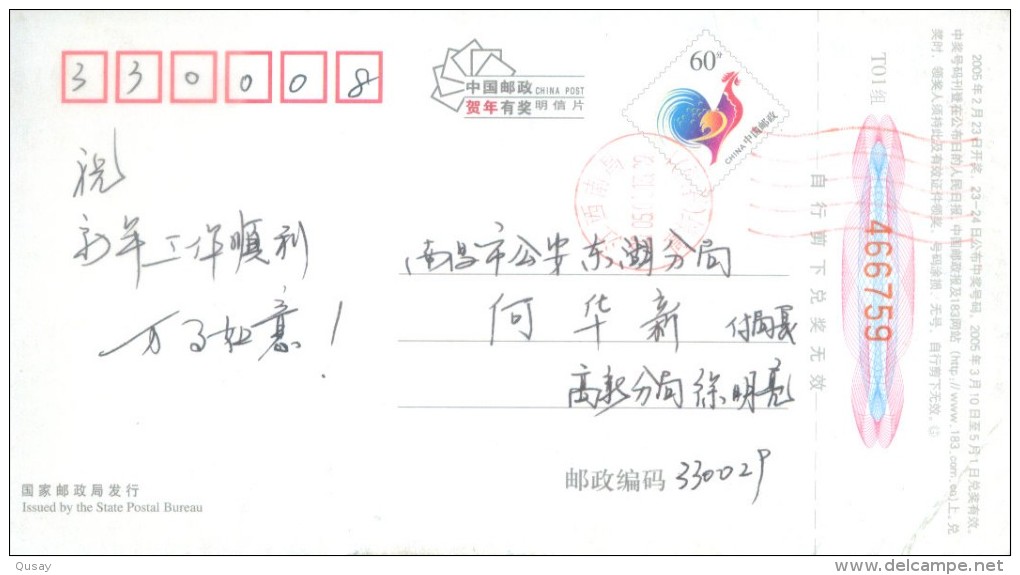 330008
中国邮政 CHINA POST
贺年有奖明信片
60分
CHINA 中国邮政
祝
新年工作顺利
万事如意！
南昌市公安东湖分局
何华新 付局长
高新分局徐明亮
邮政编码 330029
国家邮政局发行
Issued by the State Postal Bureau
自行剪下兑奖无效
T01组
466759
2005年2月23日开奖，23-24日公布中奖号码，2005年3月10日至5月1日兑奖有效。
中奖号码刊登在公布日的人民日报、中国邮政报及183网站（http://www.183.com.cn）上，兑
奖时，领奖人须持此及有效证件领奖，号码涂损、无号、自行剪下无效。
Qusay
www.delcampe.net